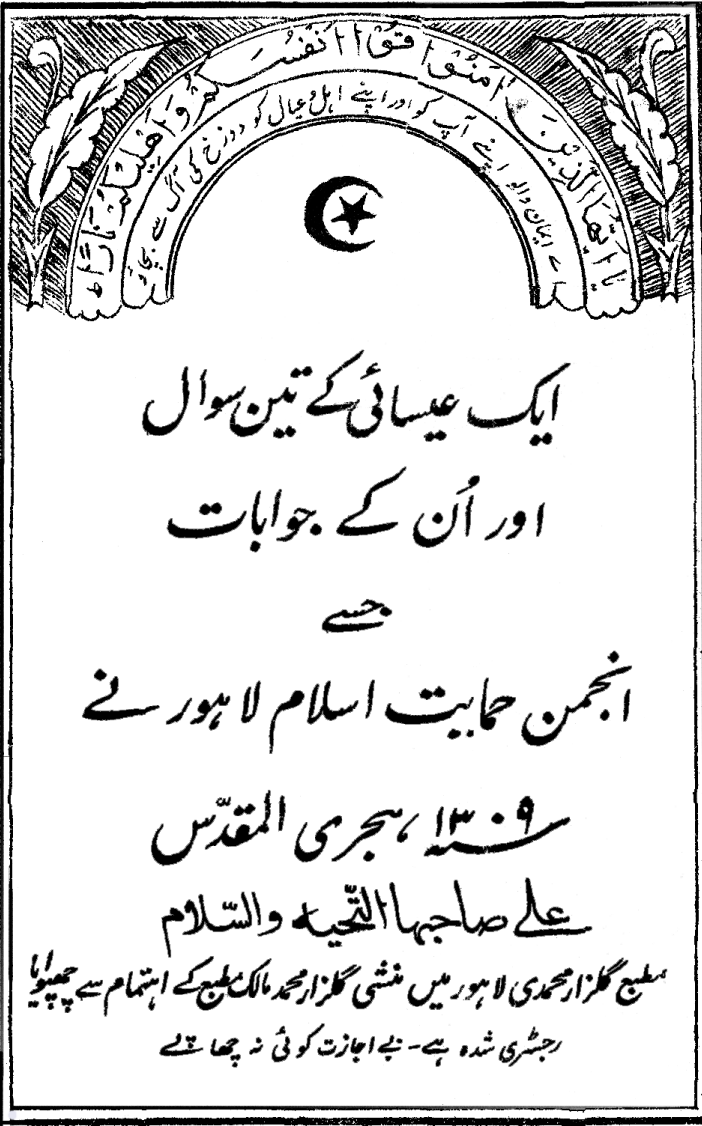 یا ایھا الذین امنوا قوا انفسکم و اھلیکم نارًا
اے ایمان والو اپنے آپ کو اور اپنے اہل و عیال کو دوزخ کی آگ سے بچاؤ
ایک عیسائی کے تین سوال
اور اُن کے جوابات
جسے
انجمن حمایت اسلام لاہور نے
سنہ ۱۳۰۹ء ہجری المقدّس
علے صاحبہا التّحیہ والسّلام
مطبع گلزار محمدی لاہور میں منشی گلزار محمد مالک مطبع کے اہتمام سے چھپوایا
رجسٹری شدہ ہے - بے اجازت کوئی نہ چھاپے